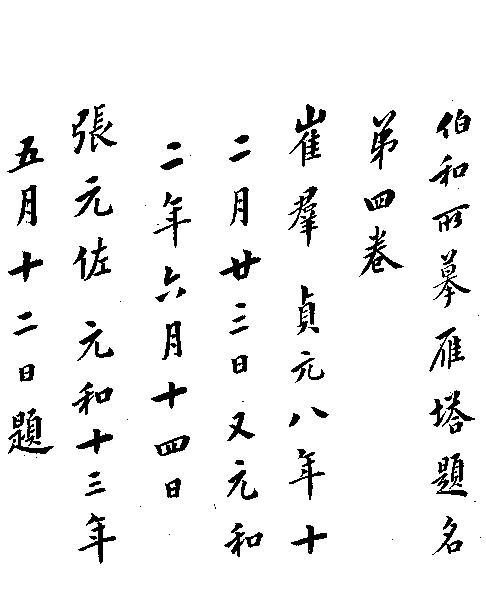 伯和所摹雁塔題名
第四卷
崔羣貞元八年十
二月廿三日又元和
二年六月十四日
張元佐元和十三年
五月十二日題